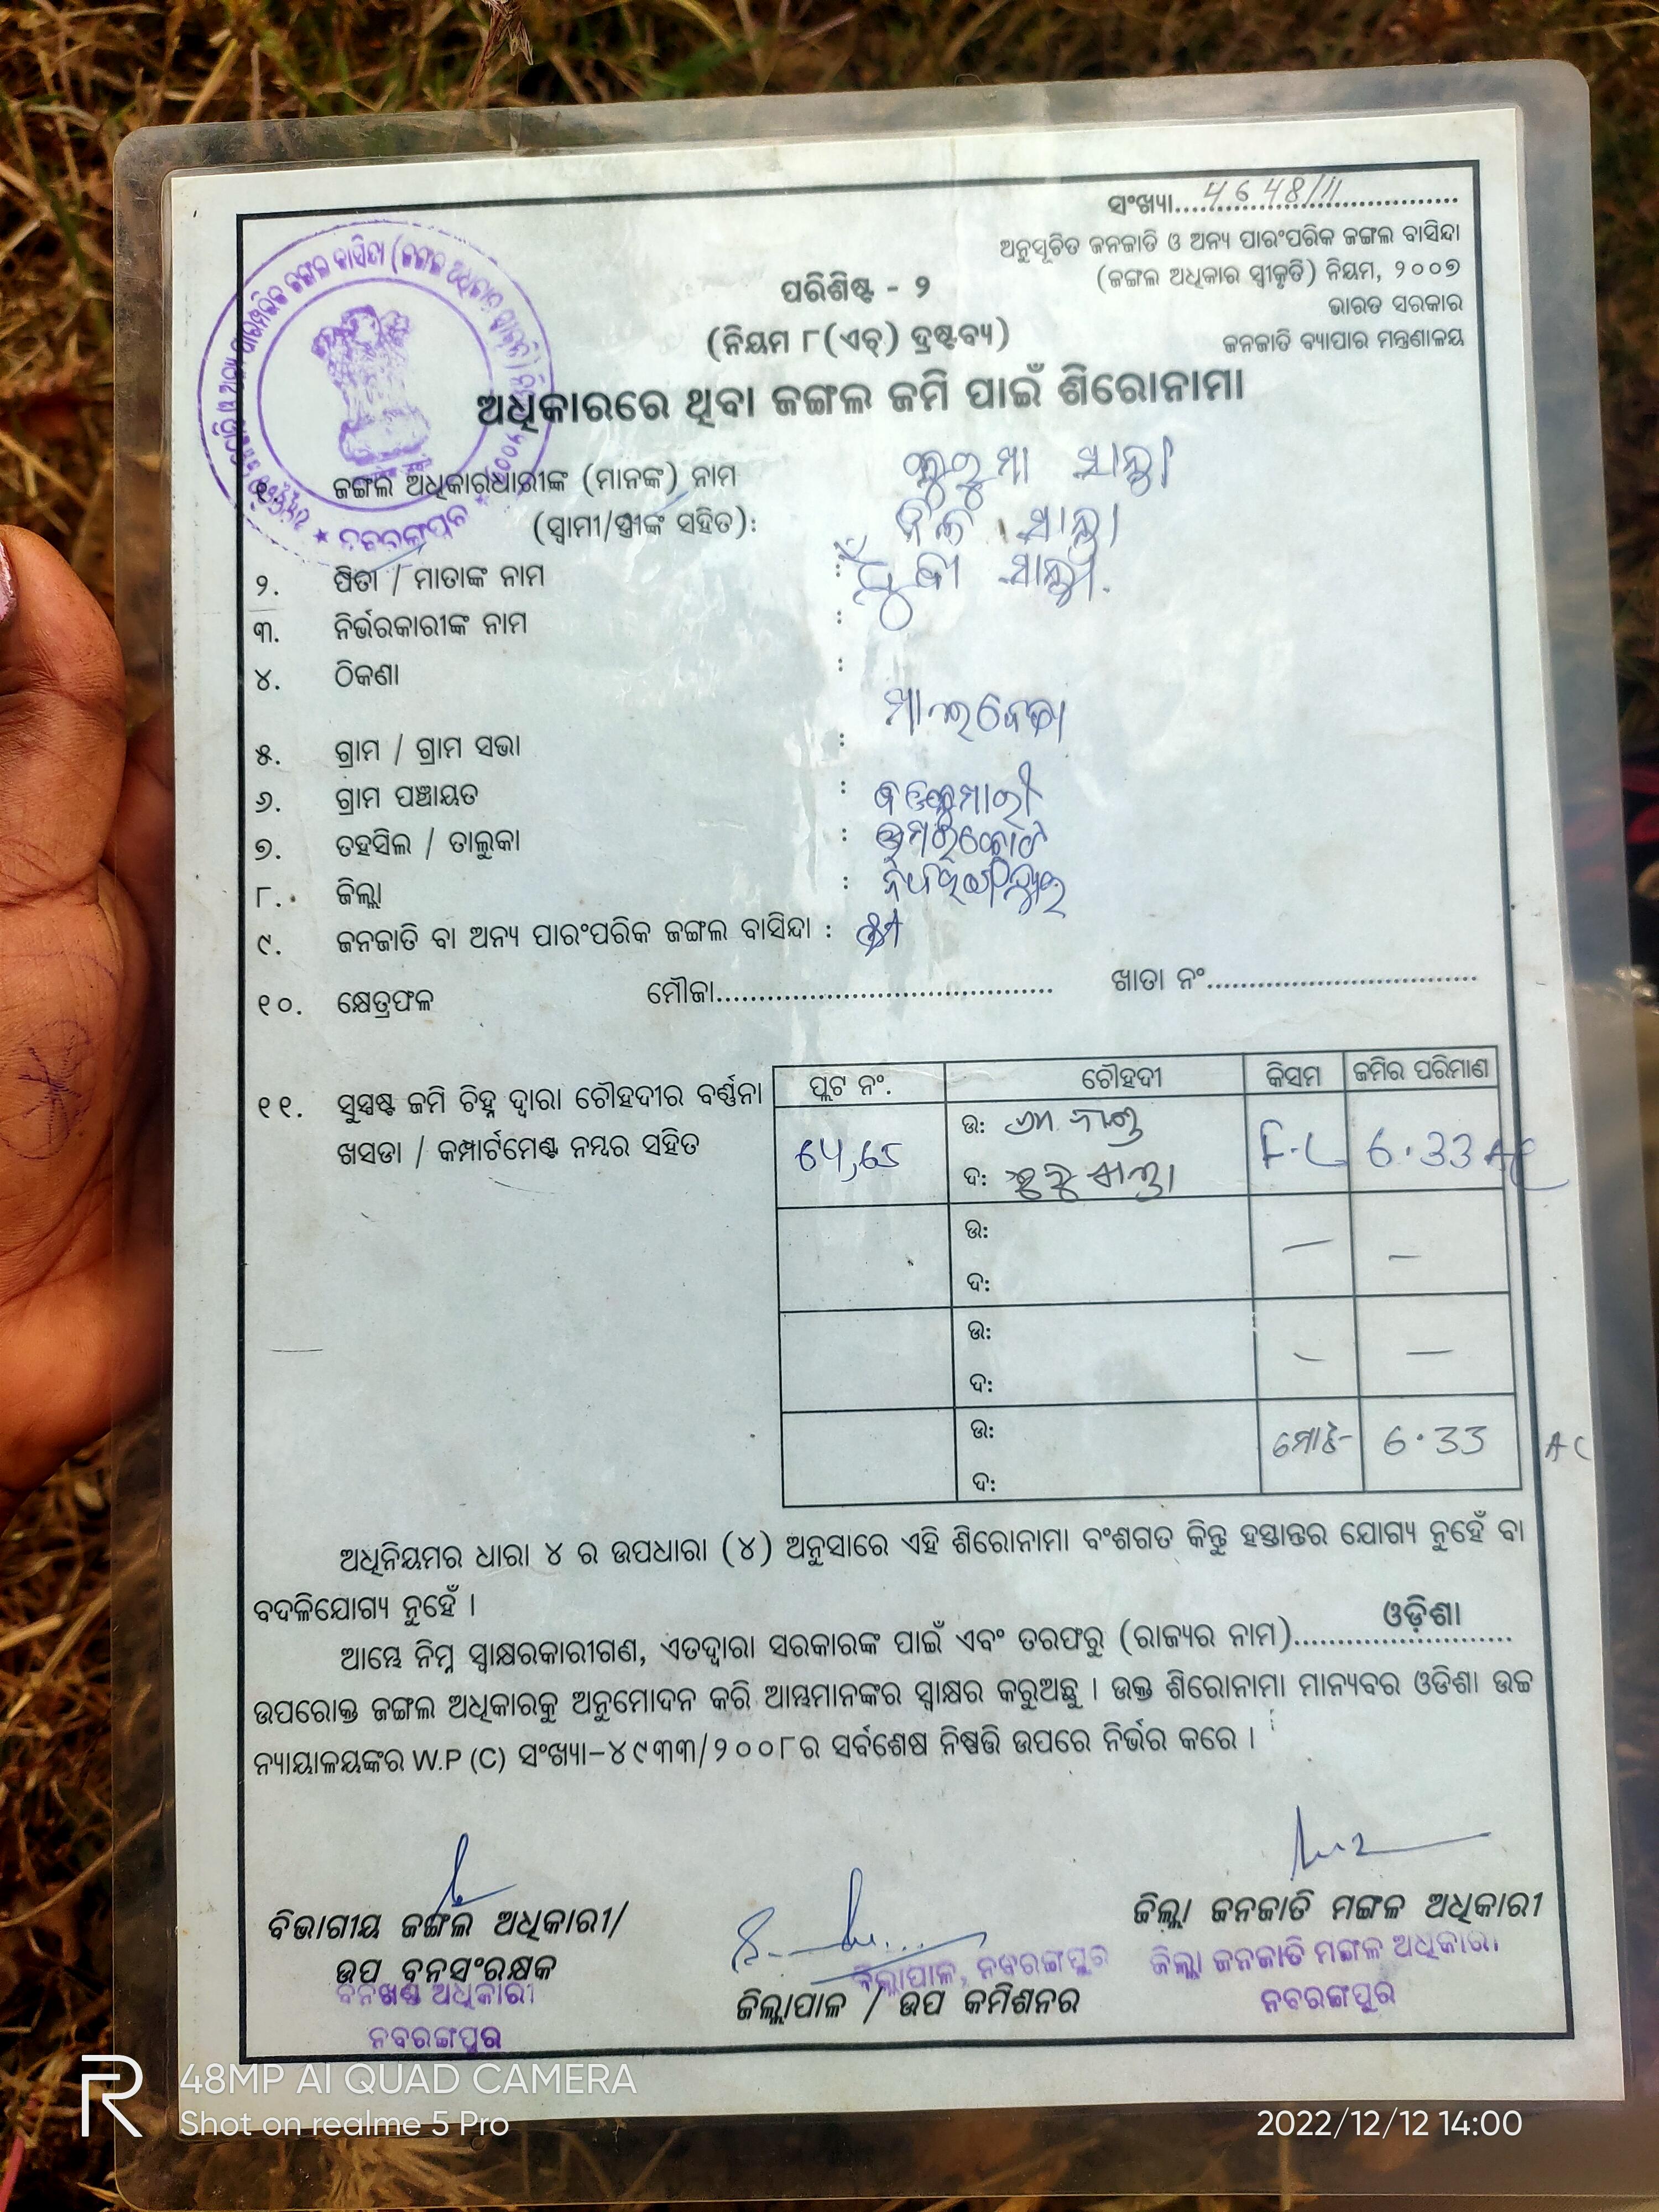 ସଂଖ୍ୟା....4648/11....
ଅନୁସୂଚିତ ଜନଜାତି ଓ ଅନ୍ୟ ପାରଂପରିକ ଜଙ୍ଗଲ ବାସିନ୍ଦା
(ଜଙ୍ଗଲ ଅଧିକାର ସ୍ୱୀକୃତି) ନିୟମ, ୨୦୦୭
ଭାରତ ସରକାର
ଜନଜାତି ବ୍ୟାପାର ମନ୍ତ୍ରଣାଳୟ
ପରିଶିଷ୍ଟ - ୨
(ନିୟମ ୮(ଏଚ୍) ଦ୍ରଷ୍ଟବ୍ୟ)
ଅଧିକାରରେ ଥିବା ଜଙ୍ଗଲ ଜମି ପାଇଁ ଶିରୋନାମା
୧. ଜଙ୍ଗଲ ଅଧିକାରଧାରୀଙ୍କ (ମାନଙ୍କ) ନାମ
(ସ୍ୱାମୀ/ସ୍ତ୍ରୀଙ୍କ ସହିତ):
ନବରଙ୍ଗପୁର
୨. ପିତା / ମାତାଙ୍କ ନାମ :
୩. ନିର୍ଭରକାରୀଙ୍କ ନାମ :
୪. ଠିକଣା :
୫. ଗ୍ରାମ / ଗ୍ରାମ ସଭା :
୬. ଗ୍ରାମ ପଞ୍ଚାୟତ :
୭. ତହସିଲ / ତାଲୁକା : ଉମରକୋଟ
୮. ଜିଲ୍ଲା :
୯. ଜନଜାତି ବା ଅନ୍ୟ ପାରଂପରିକ ଜଙ୍ଗଲ ବାସିନ୍ଦା :
୧୦. କ୍ଷେତ୍ରଫଳ ମୌଜା........................................ ଖାତା ନଂ................................
୧୧. ସୁସ୍ପଷ୍ଟ ଜମି ଚିହ୍ନ ଦ୍ୱାରା ଚୌହଦୀର ବର୍ଣ୍ଣନା
ଖସଡା / କମ୍ପାର୍ଟମେଣ୍ଟ ନମ୍ବର ସହିତ
ପ୍ଲଟ ନଂ. ଚୌହଦୀ କିସମ ଜମିର ପରିମାଣ
ଉ: F.L 6.33 AC
ଦ:
ଉ: — —
ଦ:
ଉ: — —
ଦ:
ଉ: ମୋଟ- 6.33 AC
ଦ:
ଅଧିନିୟମର ଧାରା ୪ ର ଉପଧାରା (୪) ଅନୁସାରେ ଏହି ଶିରୋନାମା ବଂଶଗତ କିନ୍ତୁ ହସ୍ତାନ୍ତର ଯୋଗ୍ୟ ନୁହେଁ ବା
ବଦଳିଯୋଗ୍ୟ ନୁହେଁ ।
ଆମ୍ଭେ ନିମ୍ନ ସ୍ୱାକ୍ଷରକାରୀଗଣ, ଏତଦ୍ୱାରା ସରକାରଙ୍କ ପାଇଁ ଏବଂ ତରଫରୁ (ରାଜ୍ୟର ନାମ)....ଓଡ଼ିଶା....
ଉପରୋକ୍ତ ଜଙ୍ଗଲ ଅଧିକାରକୁ ଅନୁମୋଦନ କରି ଆମ୍ଭମାନଙ୍କର ସ୍ୱାକ୍ଷର କରୁଅଛୁ । ଉକ୍ତ ଶିରୋନାମା ମାନ୍ୟବର ଓଡିଶା ଉଚ୍ଚ
ନ୍ୟାୟାଳୟଙ୍କର W.P (C) ସଂଖ୍ୟା-୪୯୩୩/୨୦୦୮ର ସର୍ବଶେଷ ନିଷ୍ପତ୍ତି ଉପରେ ନିର୍ଭର କରେ ।
ବିଭାଗୀୟ ଜଙ୍ଗଲ ଅଧିକାରୀ/
ଉପ ବନସଂରକ୍ଷକ
ବନଖଣ୍ଡ ଅଧିକାରୀ
ନବରଙ୍ଗପୁର
ଜିଲ୍ଲାପାଳ, ନବରଙ୍ଗପୁର
ଜିଲ୍ଲାପାଳ / ଉପ କମିଶନର
ଜିଲ୍ଲା ଜନଜାତି ମଙ୍ଗଳ ଅଧିକାରୀ
ଜିଲ୍ଲା ଜନଜାତି ମଙ୍ଗଳ ଅଧିକାରୀ
ନବରଙ୍ଗପୁର
R 48MP AI QUAD CAMERA
Shot on realme 5 Pro
2022/12/12 14:00